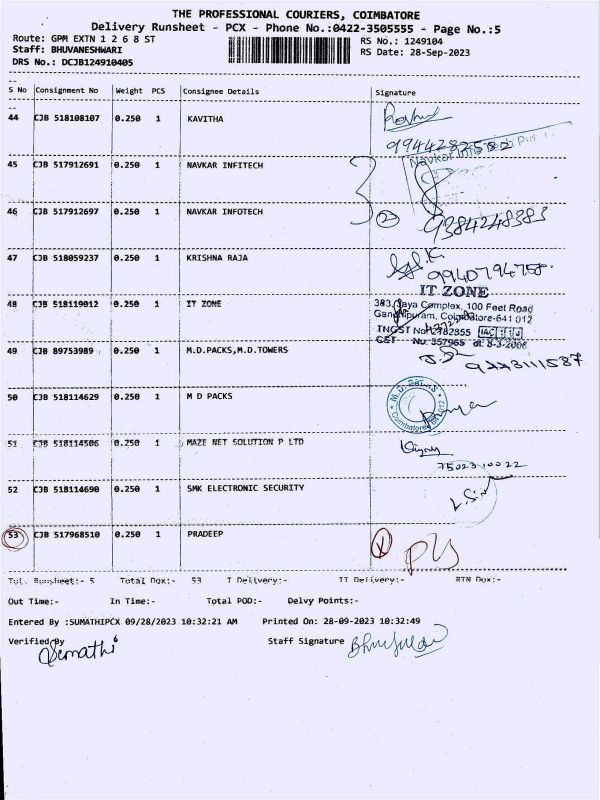 THE PROFESSIONAL COURIERS, COIMBATORE
Delivery Runsheet - PCX - Phone No.:0422-3505555 - Page No.:5
Route: GPM EXTN 1 2 6 8 ST RS No.: 1249104
Staff: BHUVANESHWARI RS Date: 28-Sep-2023
DRS No.: DCJB124910405
S No Consignment No Weight PCS Consignee Details Signature
44 CJB 518108107 0.250 1 KAVITHA
45 CJB 517912691 0.250 1 NAVKAR INFITECH
46 CJB 517912697 0.250 1 NAVKAR INFOTECH 2 9384248383
47 CJB 518059237 0.250 1 KRISHNA RAJA 9940794758
IT ZONE
48 CJB 518119012 0.250 1 IT ZONE 383, Jaya Complex, 100 Feet Road
Gandhipuram, Coimbatore-641 012
49 CJB 89753989 0.250 1 M.D.PACKS,M.D.TOWERS
50 CJB 518114629 0.250 1 M D PACKS
51 CJB 518114506 0.250 1 MAZE NET SOLUTION P LTD
7502310022
52 CJB 518114690 0.250 1 SMK ELECTRONIC SECURITY
53 CJB 517968510 0.250 1 PRADEEP
Tot. Runsheet:- 5 Total Dox:- 53 I Delivery:- II Delivery:- RTN Dox:-
Out Time:- In Time:- Total POD:- Delvy Points:-
Entered By :SUMATHIPCX 09/28/2023 10:32:21 AM Printed On: 28-09-2023 10:32:49
Verified By Staff Signature
Sumathi